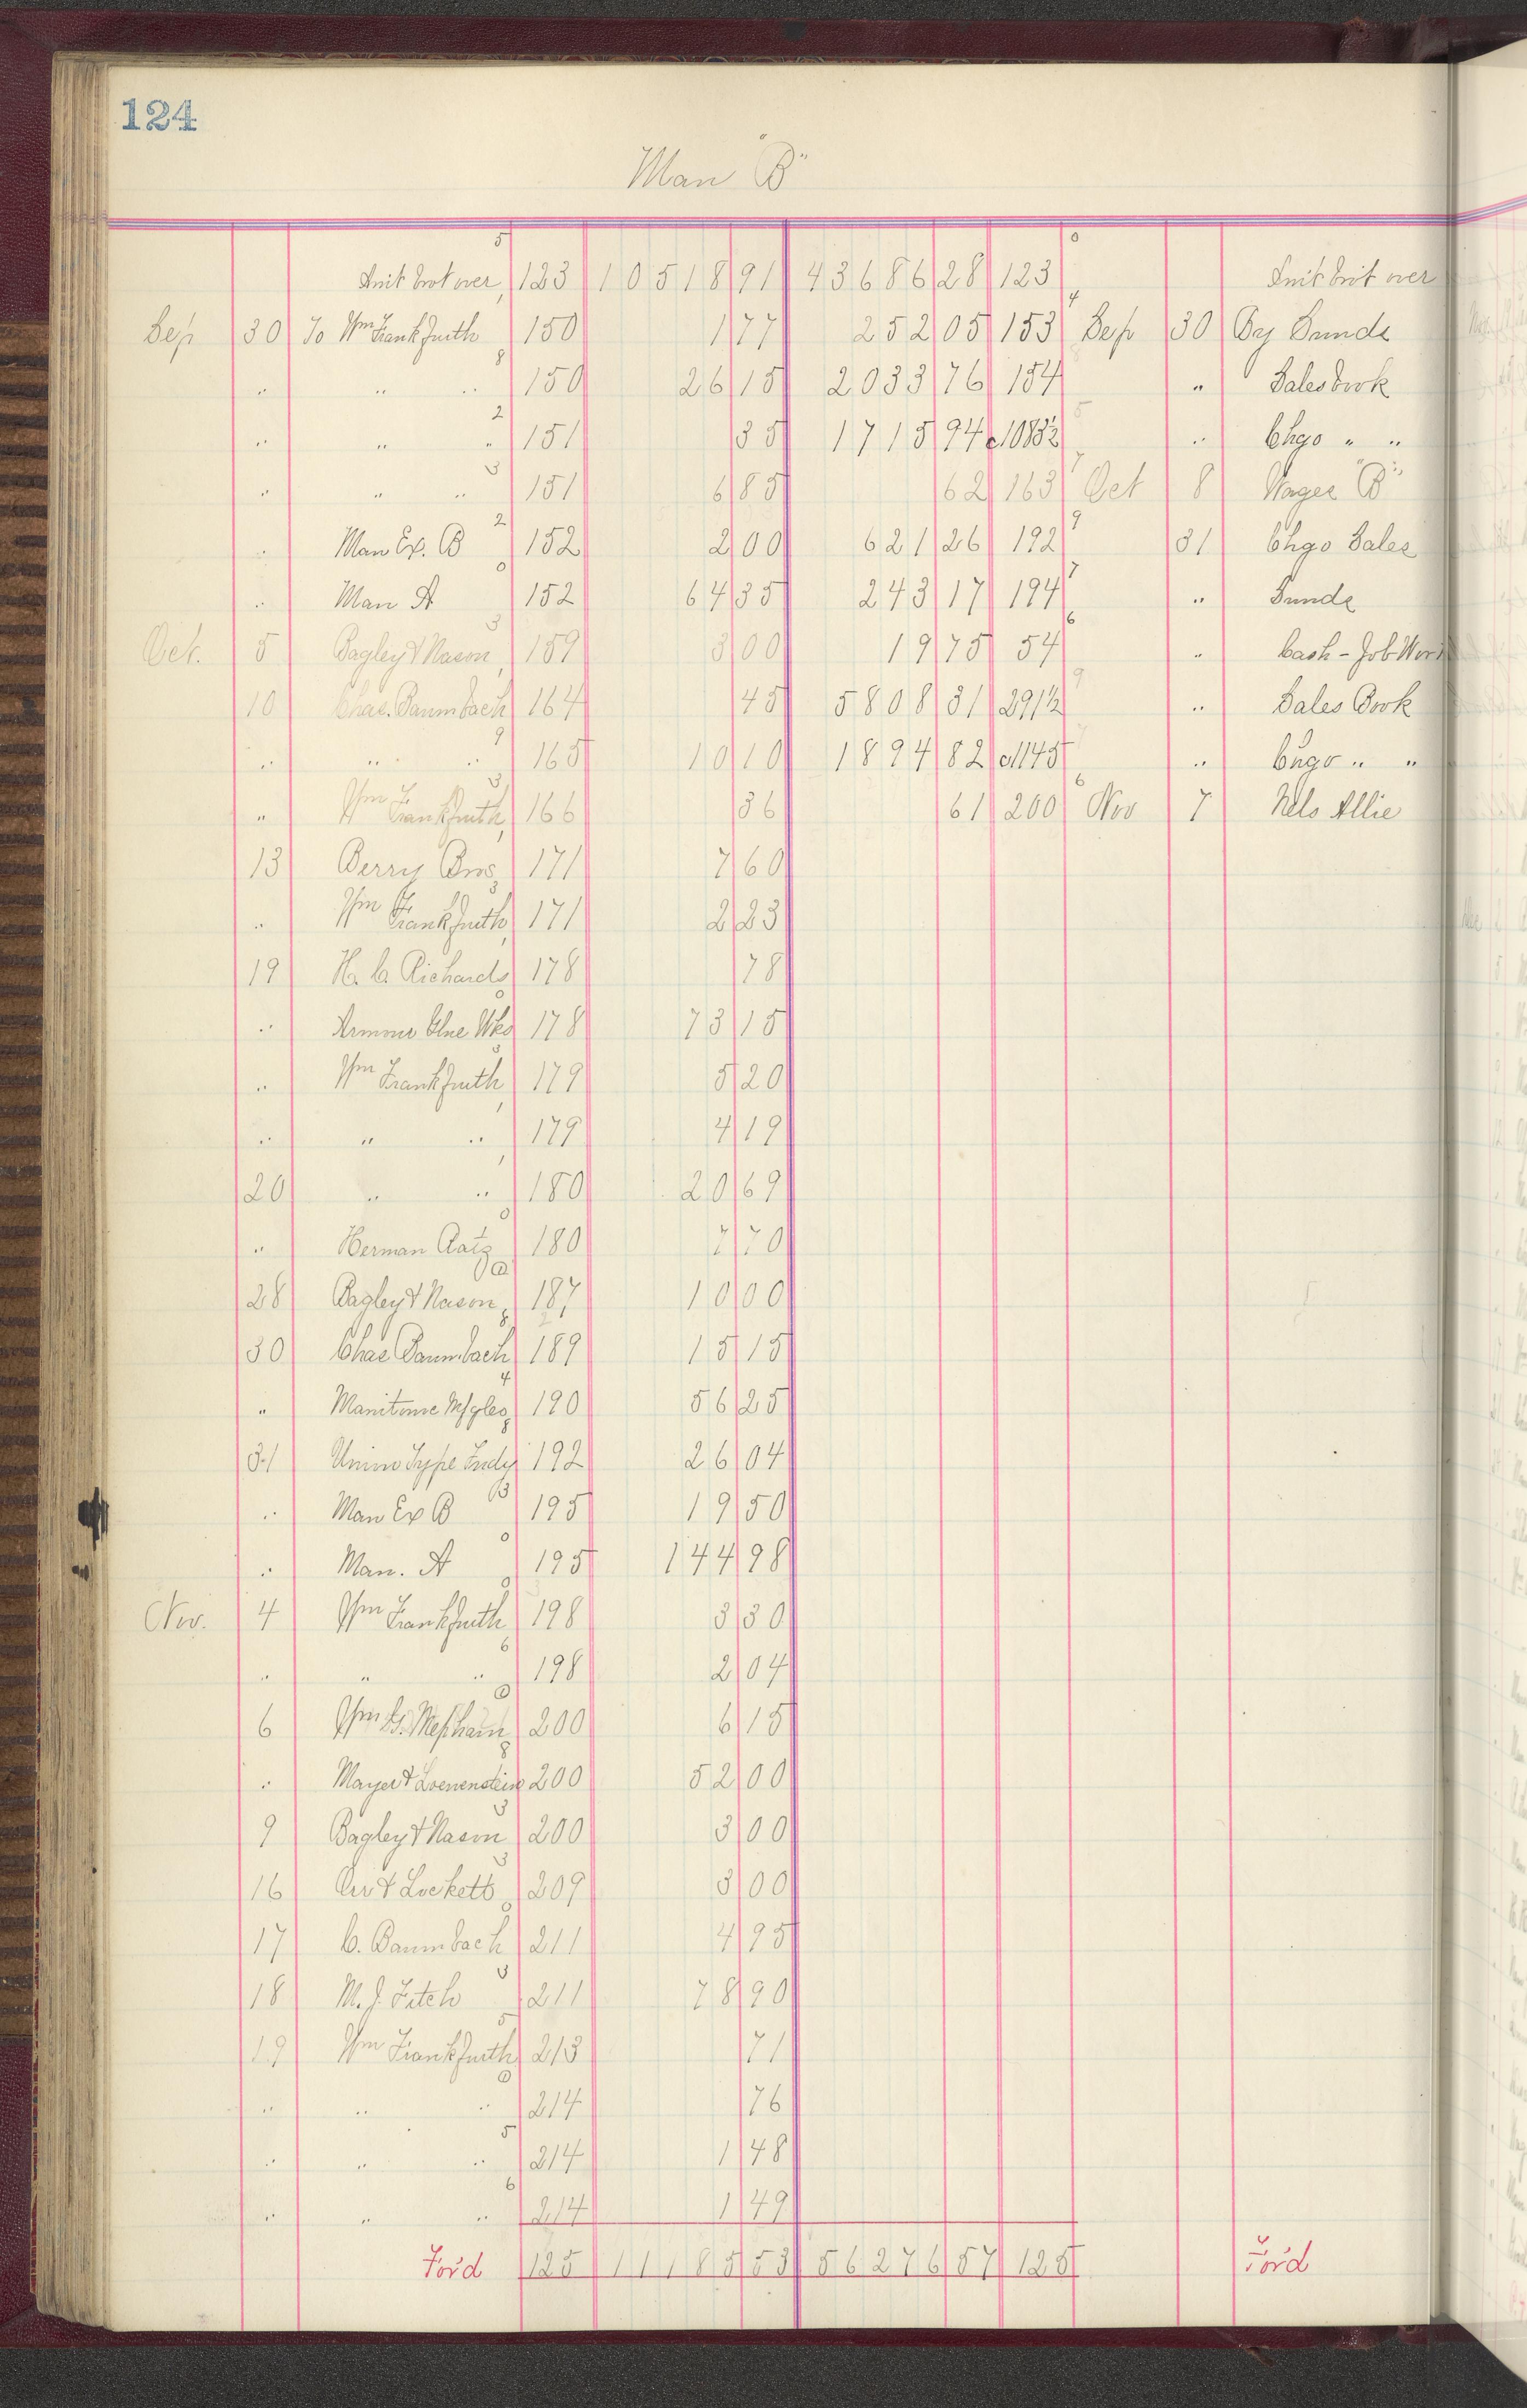 124
Man "B"
Amt brot over 123 10518 91 43686 28 123 Amt brot over
Sep 30 To Wm Frankfurth 150 1 77 252 05 153 Sep 30 By Sunds
" " " 150 26 15 2033 76 154 " Salesbook
" " " 151 35 1715 94 c1085½ " Chgo " "
" " " 151 6 85 62 163 Oct 8 Wages "B"
" Man Ex. B 152 2 00 621 26 192 31 Chgo Sales
" Man A 152 64 35 243 17 194 " Sunds
Oct. 5 Bagley & Nason 159 3 00 19 75 54 " Cash - Job Work
10 Chas. Baumbach 164 45 5808 31 291½ " Sales Book
" " " 165 10 10 1894 82 c1145 " Chgo " "
" Wm Frankfurth 166 36 61 200 Nov 7 Nels Allie
13 Berry Bros 171 7 60
" Wm Frankfurth 171 2 23
19 H. C. Richards 178 78
" Armour Glue Wks 178 73 15
" Wm Frankfurth 179 5 20
" " " 179 4 19
20 " " 180 20 69
" Herman Aatz 180 7 70
28 Bagley & Nason 187 10 00
30 Chas Baumbach 189 15 15
" Manitowc Mfg Co 190 56 25
31 Union Type Fndy 192 26 04
" Man Ex B 195 19 50
" Man. A 195 144 98
Nov. 4 Wm Frankfurth 198 3 30
" " " 198 2 04
6 Wm G. Mepham 200 6 15
" Mayer & Loewenstein 200 52 00
9 Bagley & Nason 200 3 00
16 Orr & Lockett 209 3 00
17 C. Baumbach 211 4 95
18 M. J. Fitch 211 78 90
19 Wm Frankfurth 213 71
" " " 214 76
" " " 214 1 48
" " " 214 1 49
Ford 125 11185 53 56276 57 125 Ford